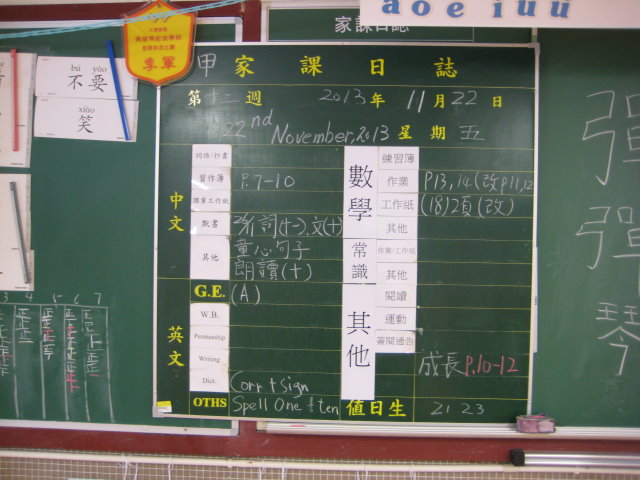 aoeiuu
家課日誌
季軍
bù yào
不要
xiào
笑
甲 家課日誌
第十二週 2013年 11月22日
22nd November, 2013 星期五
中文
詞語/抄書
習作簿 P.7-10
課堂工作紙
默書
其他 童心句子
朗讀(十)
英文
G.E. (A)
W.B.
Penmanship
Writing
Dict. Corr + sign
OTHS Spell One + ten
數學
練習簿
作業 P13,14(改P11,12
工作紙 (18)2頁(改)
其他
常識
作業/工作紙
其他
其他
閱讀
運動
簽閱通告
成長P.10-12
值日生 21 23
彈
彈
琴
3 4 5 6 7